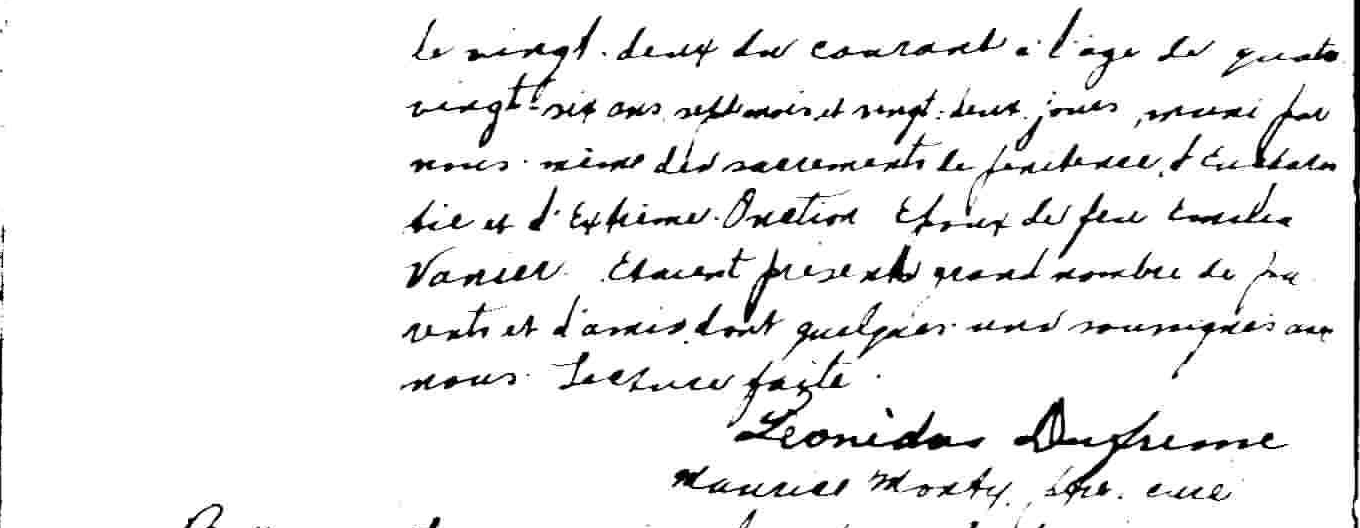 le vingt-deux du courant à l'âge de quatre
vingt-six ans sept mois et vingt-deux jours, muni par
nous-même des sacrements de pénitence, d'Eucharis
tie et d'Extrême-Onction Epoux de feu
Vanier. Etaient présents grand nombre de pa
rents et d'amis dont quelques-uns soussignés avec
nous. Lecture faite.
Léonidas Dufresne
Maurice Monty, ptre. curé